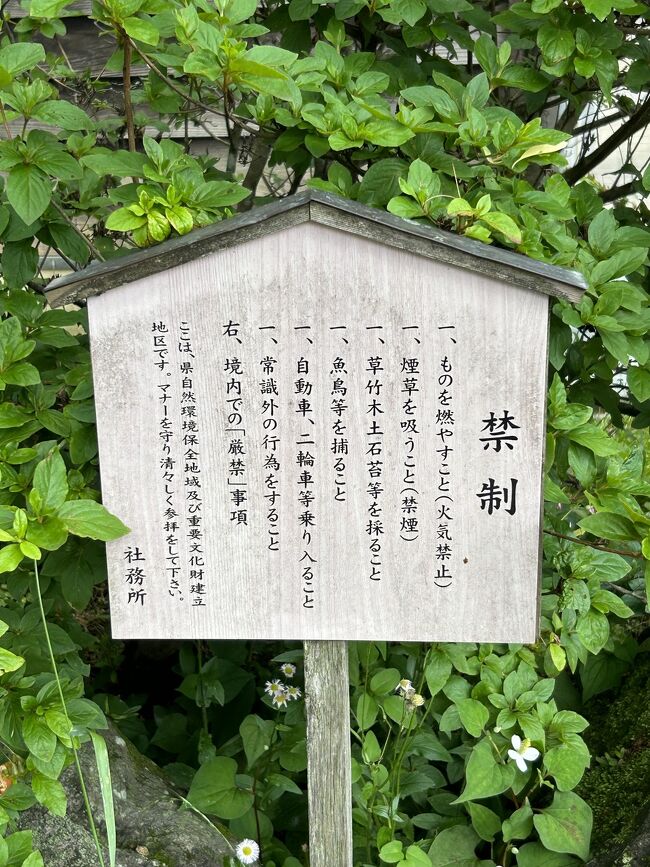 禁制
一、ものを燃やすこと(火気禁止)
一、煙草を吸うこと(禁煙)
一、草竹木土石苔等を採ること
一、魚鳥等を捕ること
一、自動車、二輪車等乗り入ること
一、常識外の行為をすること
右、境内での「厳禁」事項
ここは、県自然環境保全地域及び重要文化財建立
地区です。マナーを守り清々しく参拝をして下さい。
社務所